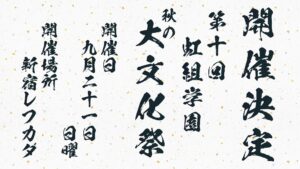 開催決定
第十回
虹組学園
秋の
大文化祭
開催日
九月二十一日
日曜
開催場所
新宿レフカダ